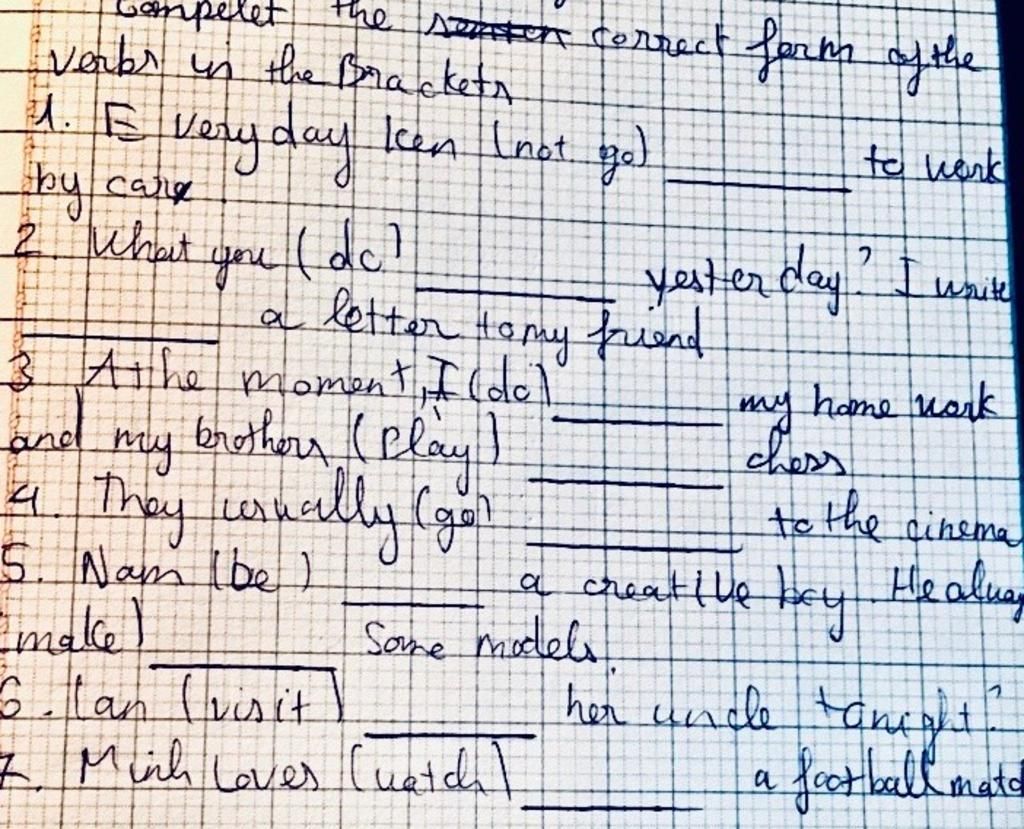 Compelet the correct form of the
verbs in the Brackets
1. Every day Ken (not go) ________ to work
by car
2 What you (do) ________ yesterday? I write
________ a letter to my friend
3 At the moment, I (do) ________ my home work
and my brothers (Play) ________ chess
4. They usually (go) ________ to the cinema
5. Nam (be) ________ a creative boy. He alway
make) ________ Some models.
6. Lan (visit) ________ her uncle tonight?
7. Minh Loves (watch) ________ a football matc